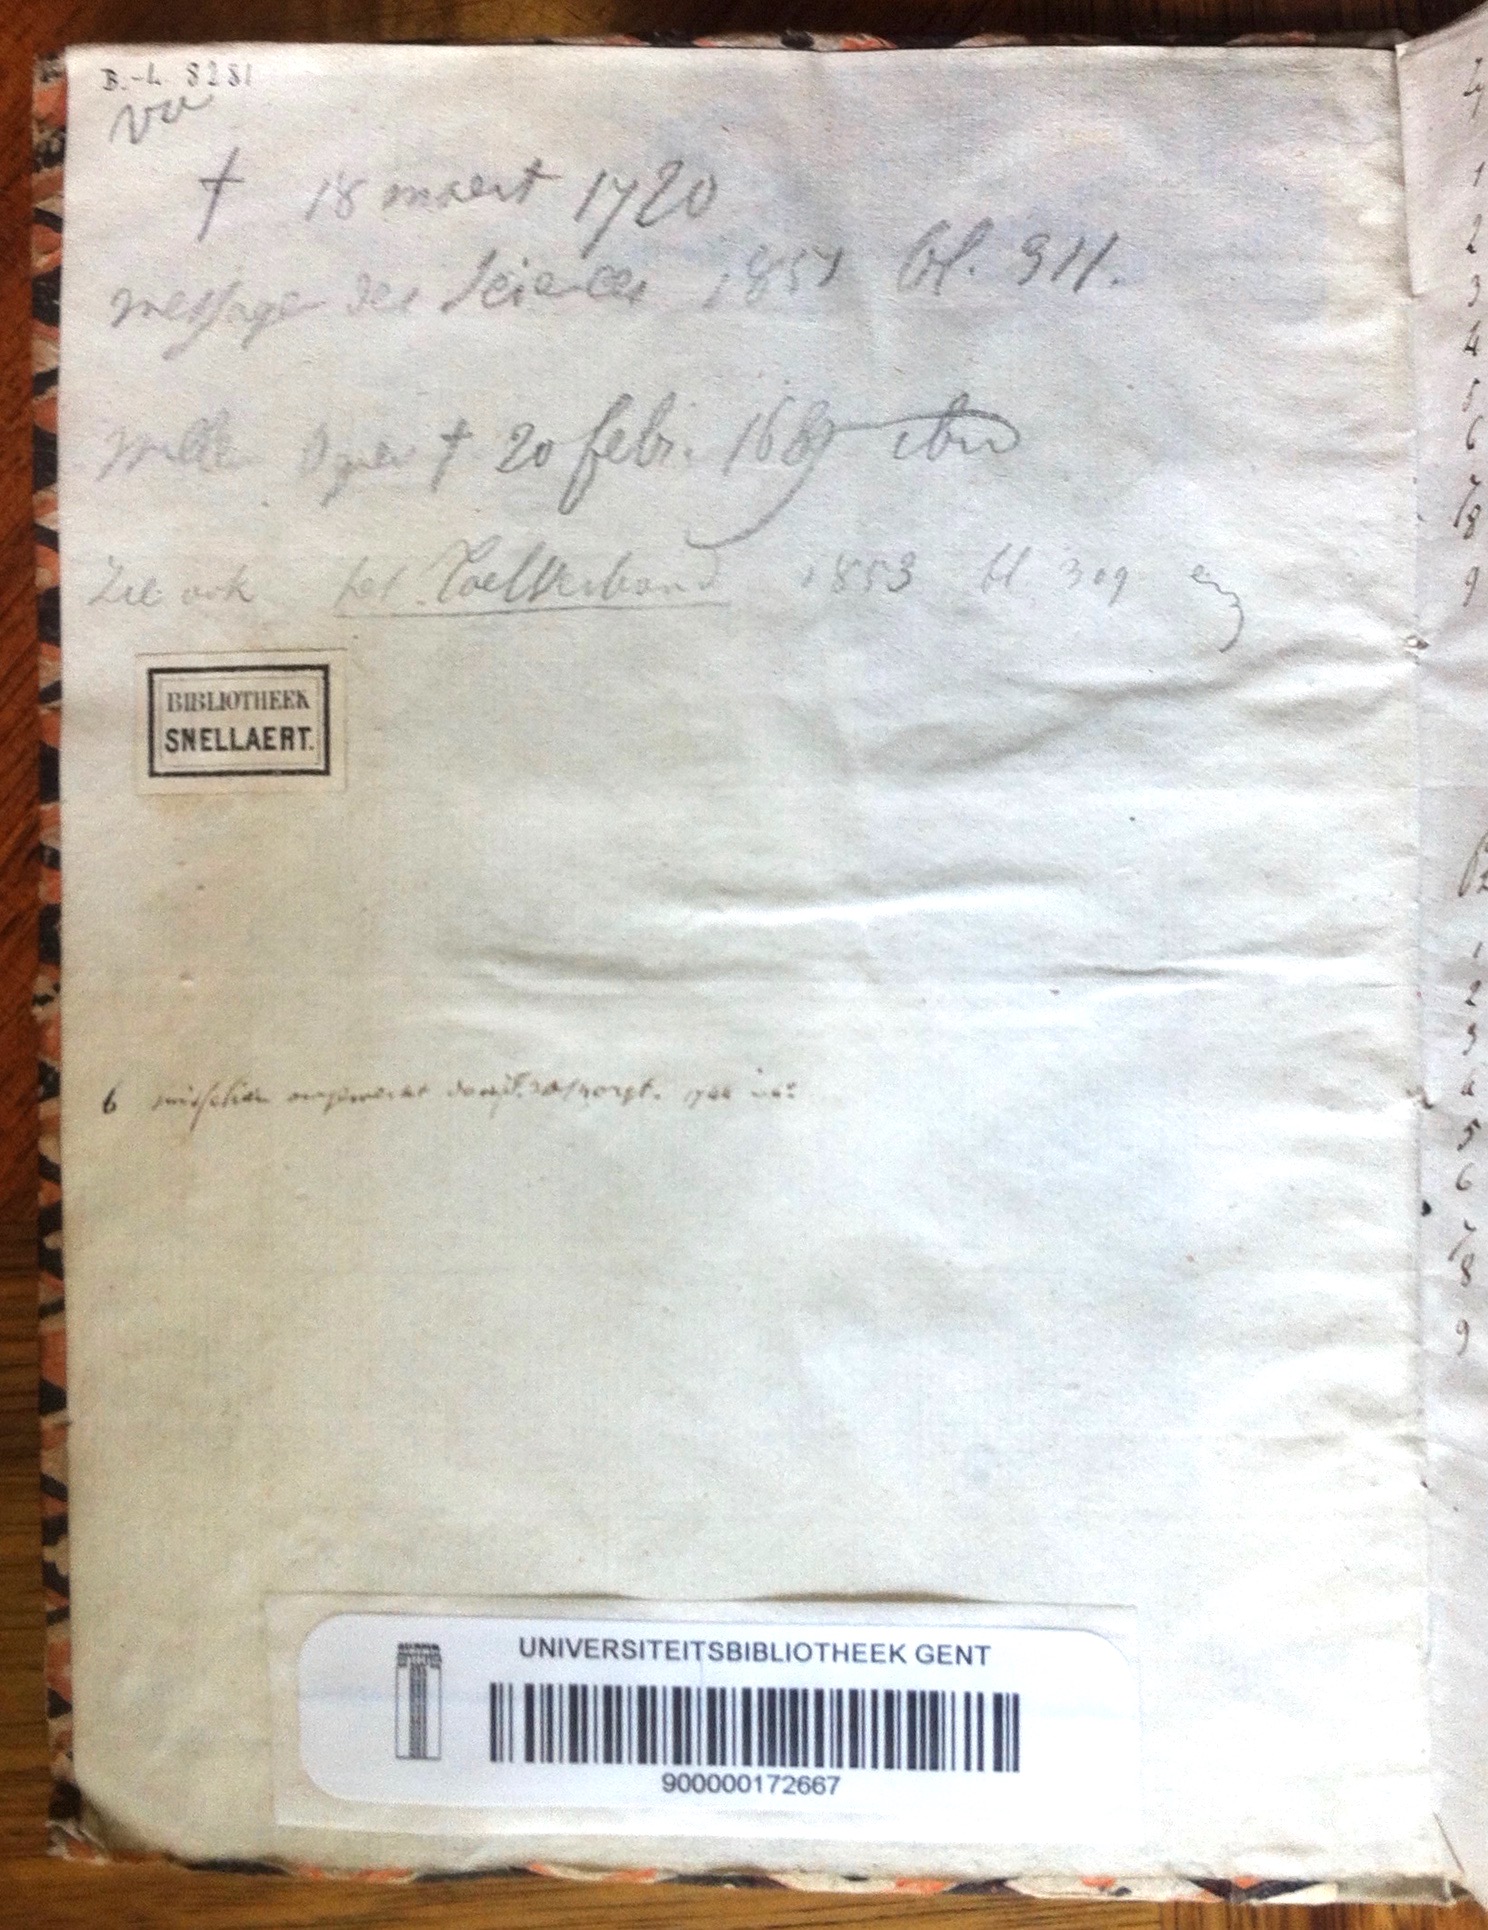 B.-L. 8281
vu
† 18 maert 1720
messager des Sciences 1851 bl. 311.
† 20 febr. 168
Zie ook het Taelverbond 1853 bl. 309 en
BIBLIOTHEEK
SNELLAERT.
6 misschien 1744 in 4o
UNIVERSITEITSBIBLIOTHEEK GENT
900000172667
1
2
3
4
5
6
7
8
9
1
2
3
4
5
6
7
8
9